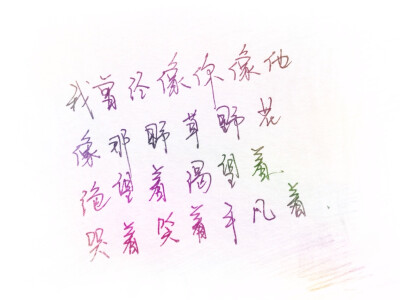 我曾经像你像他
像那野草野花
绝望着渴望着
哭着笑着平凡着.